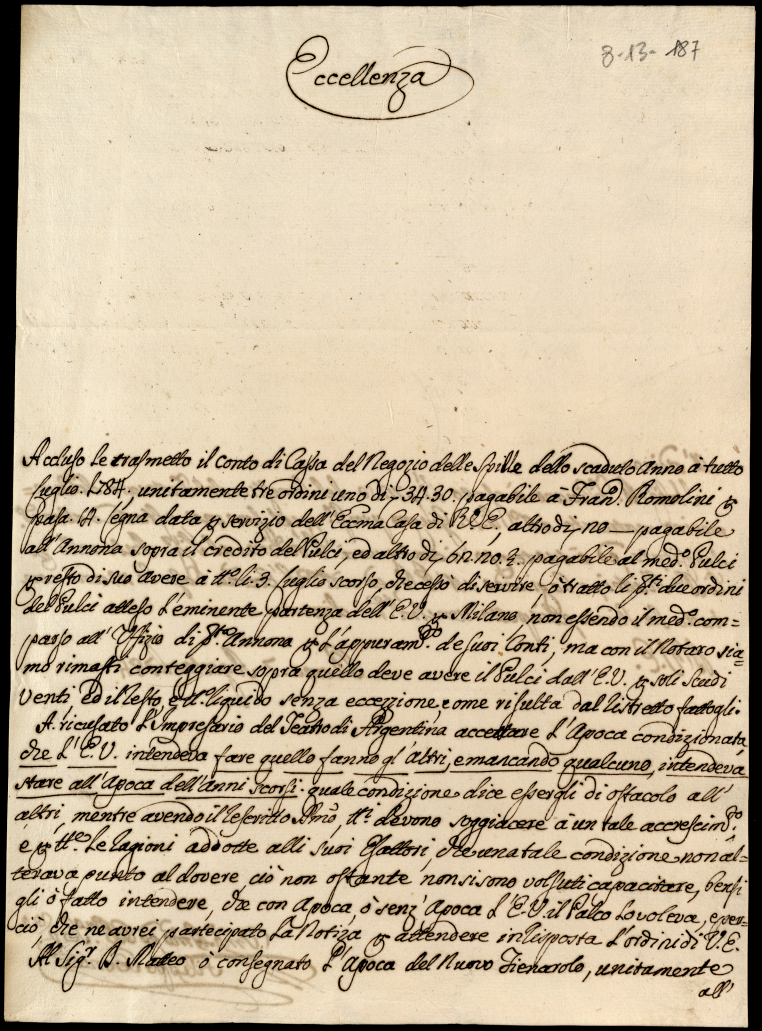 Eccellenza
8-13-187
Accluso Le trasmetto il conto di Cassa del Negozio delle Spille dello scaduto Anno à tutto
luglio. unitamente tre ordini uno di 34.30. pagabile à Fran. Romolini
data servizio dell'Eccma Casa di altro di pagabile
all'Annona sopra il credito del Pulci, ed altro di pagabile al med.º Pulci
resto di suo avere à li 3. luglio scorso, che cessò di servire, ò tratto li due ordini
del Pulci atteso l'eminente partenza dell'E.V. Milano, non essendo il med.º com=
parso all'Offizio di Annona l'appuram.to de suoi Conti, ma con il Notaro sia=
mo rimasti conteggiare sopra quello deve avere il Pulci dall'E.V. soli scudi
venti, ed il resto, è liquido senza eccezione, come risulta dal ristretto fattogli.
A ricusato l'Impresario del Teatro di Argentina accettare l'Apoca condizionata,
che l'E.V. intendeva fare quello fanno gl'altri, e mancando qualcuno, intendeva
stare all'Apoca dell'anni scorsi. quale condizione dice essergli di ostacolo all'
altri, mentre avendo il Rescritto devono soggiacere à un tale accrescim.to
è Le ragioni addotte alli suoi Esattori, che una tale condizione non al=
terava punto al dovere, ciò non ostante non si sono volsuti capacitare, bensi
gli ò fatto intendere, che con Apoca, ò senz'Apoca l'E.V. il Palco lo voleva, e per=
ciò, che ne avrei partecipato La Notizia attendere in risposta l'ordini di V.E.
Al Sig.r D. Matteo ò consegnato l'Apoca del Nuovo Fienarolo, unitamente
all'